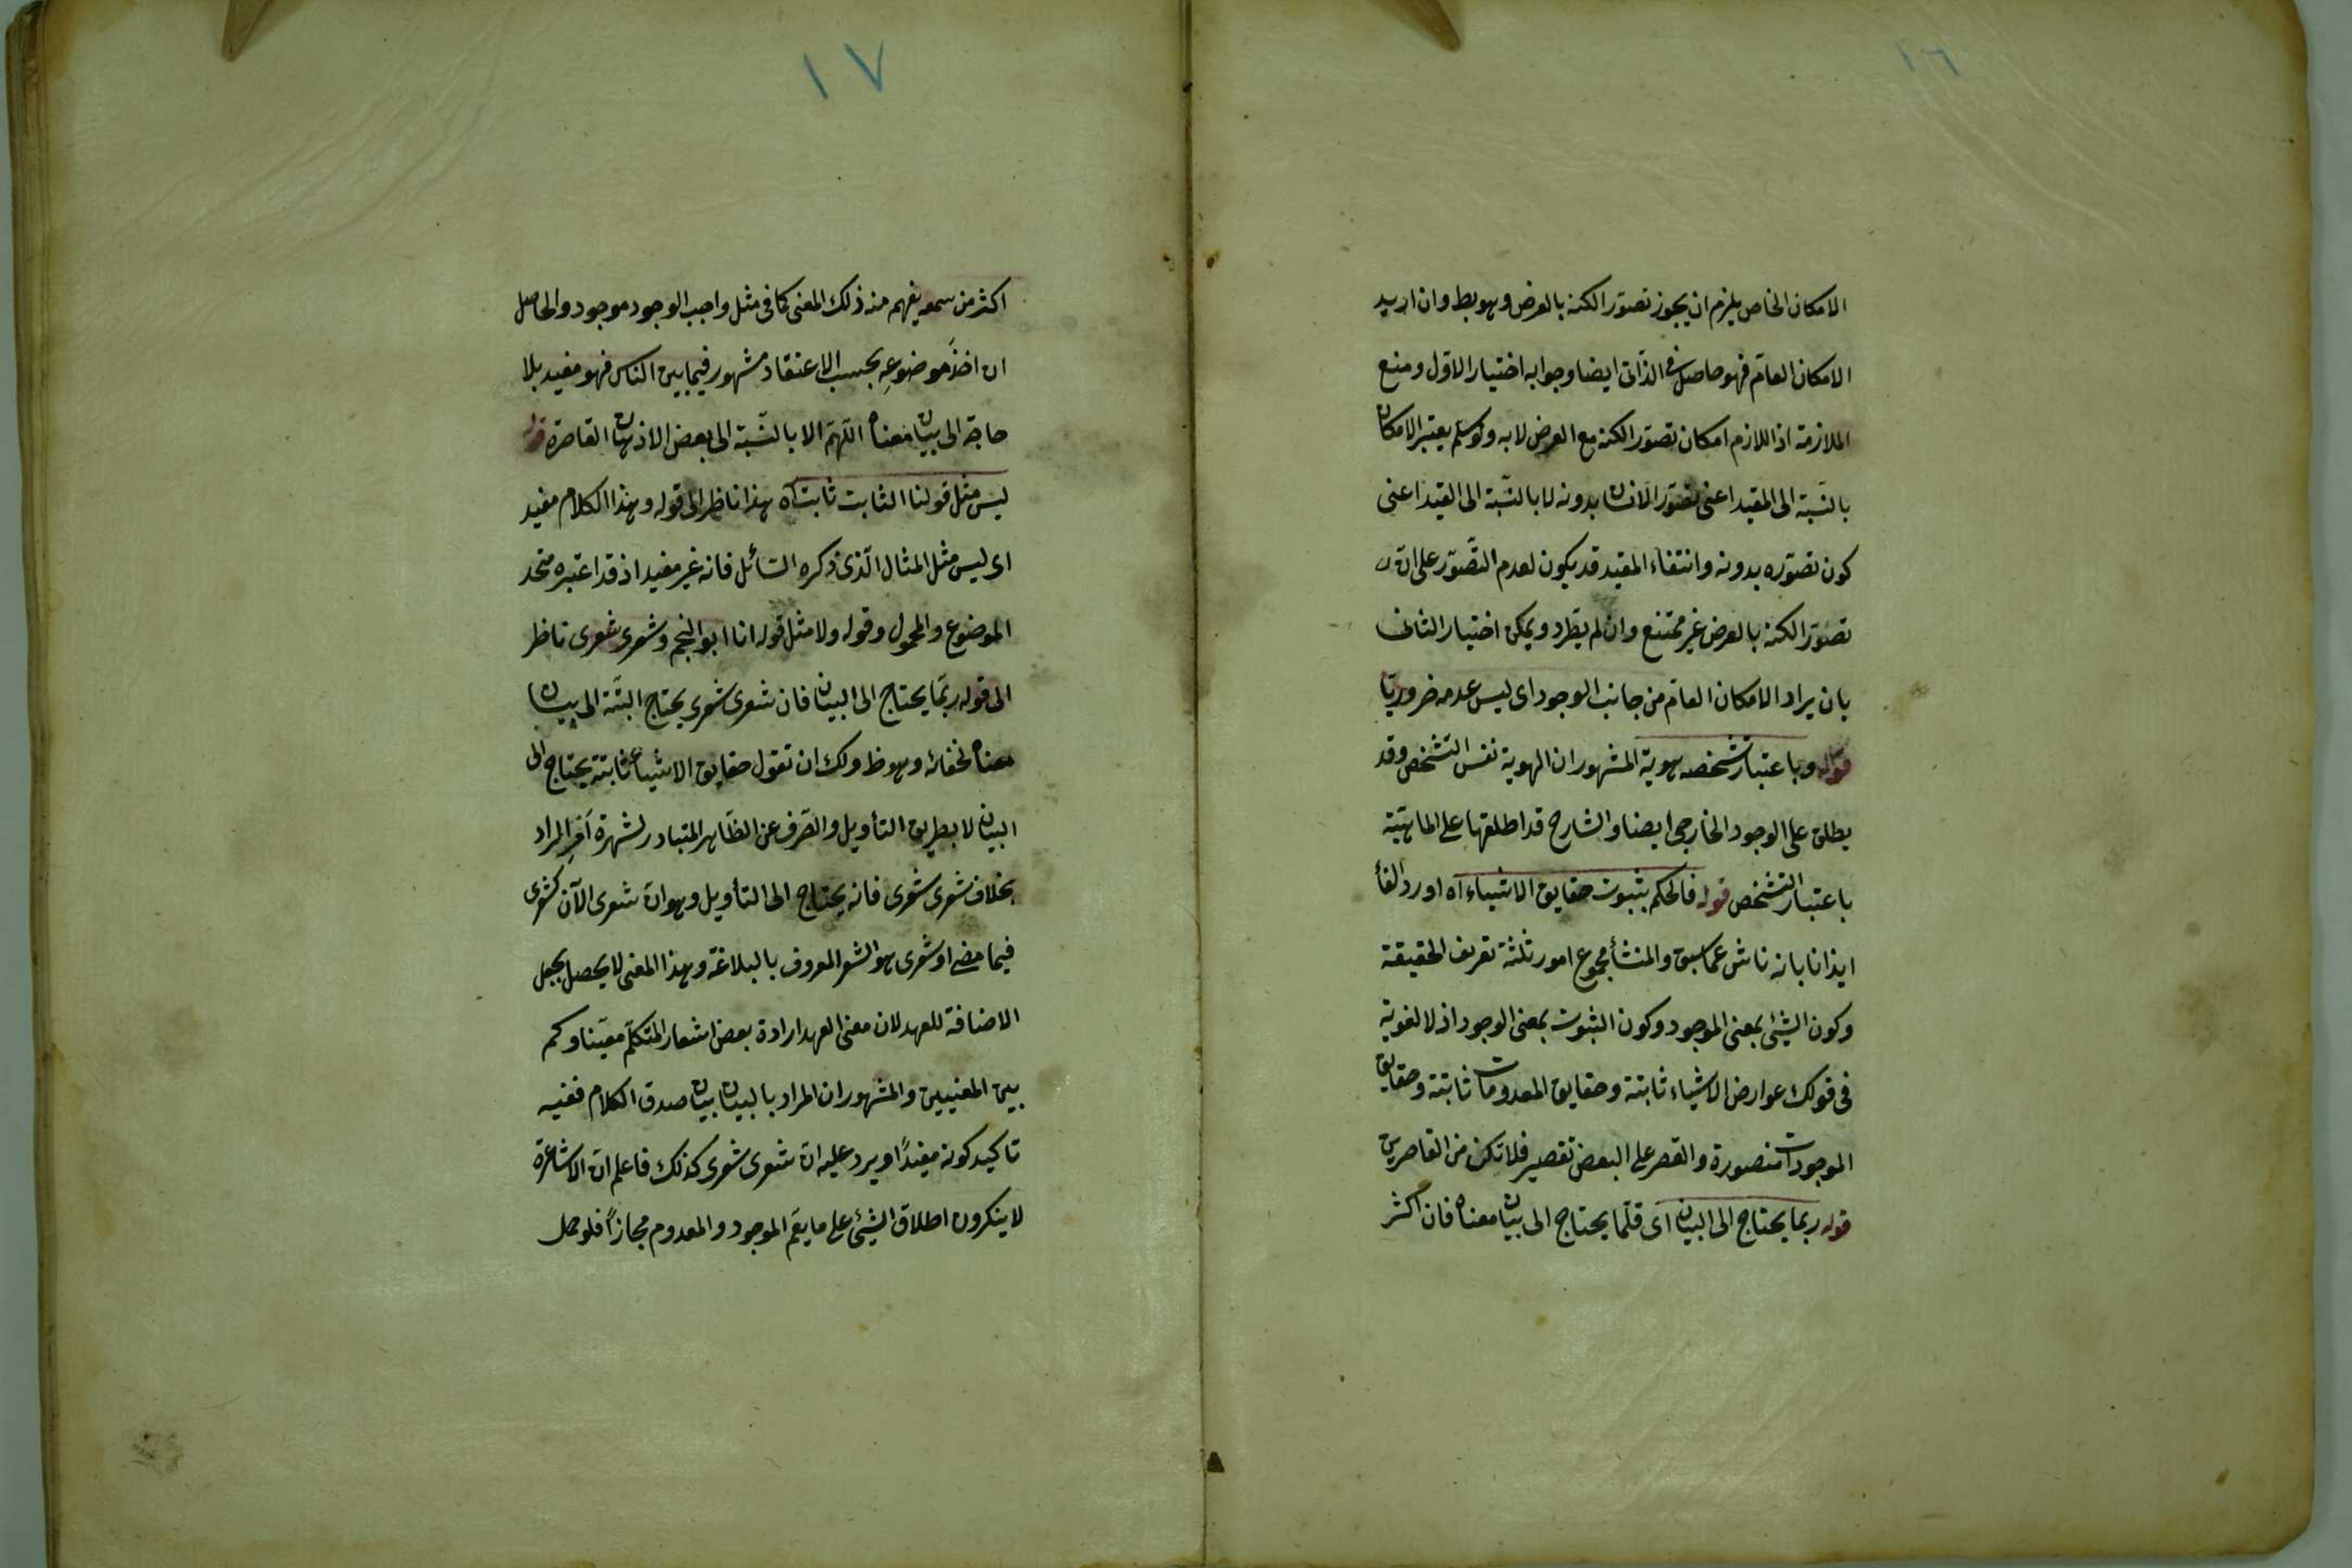 ١٦
الامكان الخاص يلزم ان يجوز تصوّر الكنه بالعرض وهو بط وان اريد
الامكان العامّ فهو حاصل فى الذّاتى ايضا وجوابه اختيار الاوّل ومنع
الملازمة اذ اللازم امكان تصوّر الكنه مع العرض لا به ولو سلم يعتبر الامكان
بالنّسبة الى المقيد اعنى تصوّر الانسان بدونه لا بالنّسبة الى القيد اعنى
كون تصوّره بدونه وانتفاء المقيد قد يكون لعدم التّصوّر على انّ
تصوّر الكنه بالعرض غير ممتنع وان لم يطّرد ويمكن اختيار الثانى
بان يراد الامكان العامّ من جانب الوجود اى ليس عدمه ضروريّا
قوله وباعتبار تشخصه هوية المشهور ان الهوية نفس التشخص وقد
يطلق على الوجود الخارجى ايضا والشارح قد اطلقها على الماهيّة
باعتبار التشخص قوله فالحكم بثبوت حقايق الاشياء آه اورد الفأ
ايذانا بانه ناش عما سبق والمنشأ مجموع امور ثلثة تعريف الحقيقة
وكون الشيئ بمعنى الموجود وكون الثبوت بمعنى الوجود اذ لا لغوية
فى قولك عوارض الاشياء ثابتة وحقايق المعدومات ثابتة وحقايق
الموجودات متصورة والقصر على البعض تقصير فلا تكن من القاصرين
قوله ربما يحتاج الى البيان اى قلّما يحتاج الى بيان معناه فان اكثر
١٧
اكثر من سمعه يفهم منه ذلك المعنى كما فى مثل واجب الوجود موجود والحاصل
ان اخذ موضوعه بحسب الاعتقاد مشهور فيما بين الناس فهو مفيد بلا
حاجة الى بيان معناه اللّهمّ الا بالنّسبة الى بعض الاذهان القاصرة قوله
ليس مثل قولنا الثابت ثابت آه هذا ناظر الى قوله وهذا الكلام مفيد
اى ليس مثل المثال الّذى ذكره السّائل فانه غير مفيد اذ قد اعتبره متحد
الموضوع والمحمول وقوله ولا مثل قوله انا ابو النجم وشعرى شعرى ناظر
الى قوله ربّما يحتاج الى البيان فان شعرى شعرى يحتاج البتّة الى بيان
معناه لخفائه وهو ظ ولك ان تقول حقايق الاشياء ثابتة يحتاج الى
البيان لا بطريق التأويل والصّرف عن الظّاهر المتبادر لشهرة امر المراد
بخلاف شعرى شعرى فانه يحتاج الى التأويل وهو انّ شعرى الآن كشعرى
فيما مضى او شعرى هو الشعر المعروف بالبلاغة وهذا المعنى لا يحصل بجعل
الاضافة للعهد لان معنى العهد ارادة بعض اشعار المتكلّم معيّنا وكم
بين المعنيين والمشهور ان المراد بالبيان بيان صدق الكلام ففيه
تاكيد كونه مفيدًا ويرد عليه انّ شعرى شعرى كذلك فاعلم انّ الاشاعرة
لا ينكرون اطلاق الشيئ على ما يعمّ الموجود والمعدوم مجازاً فلو حمل